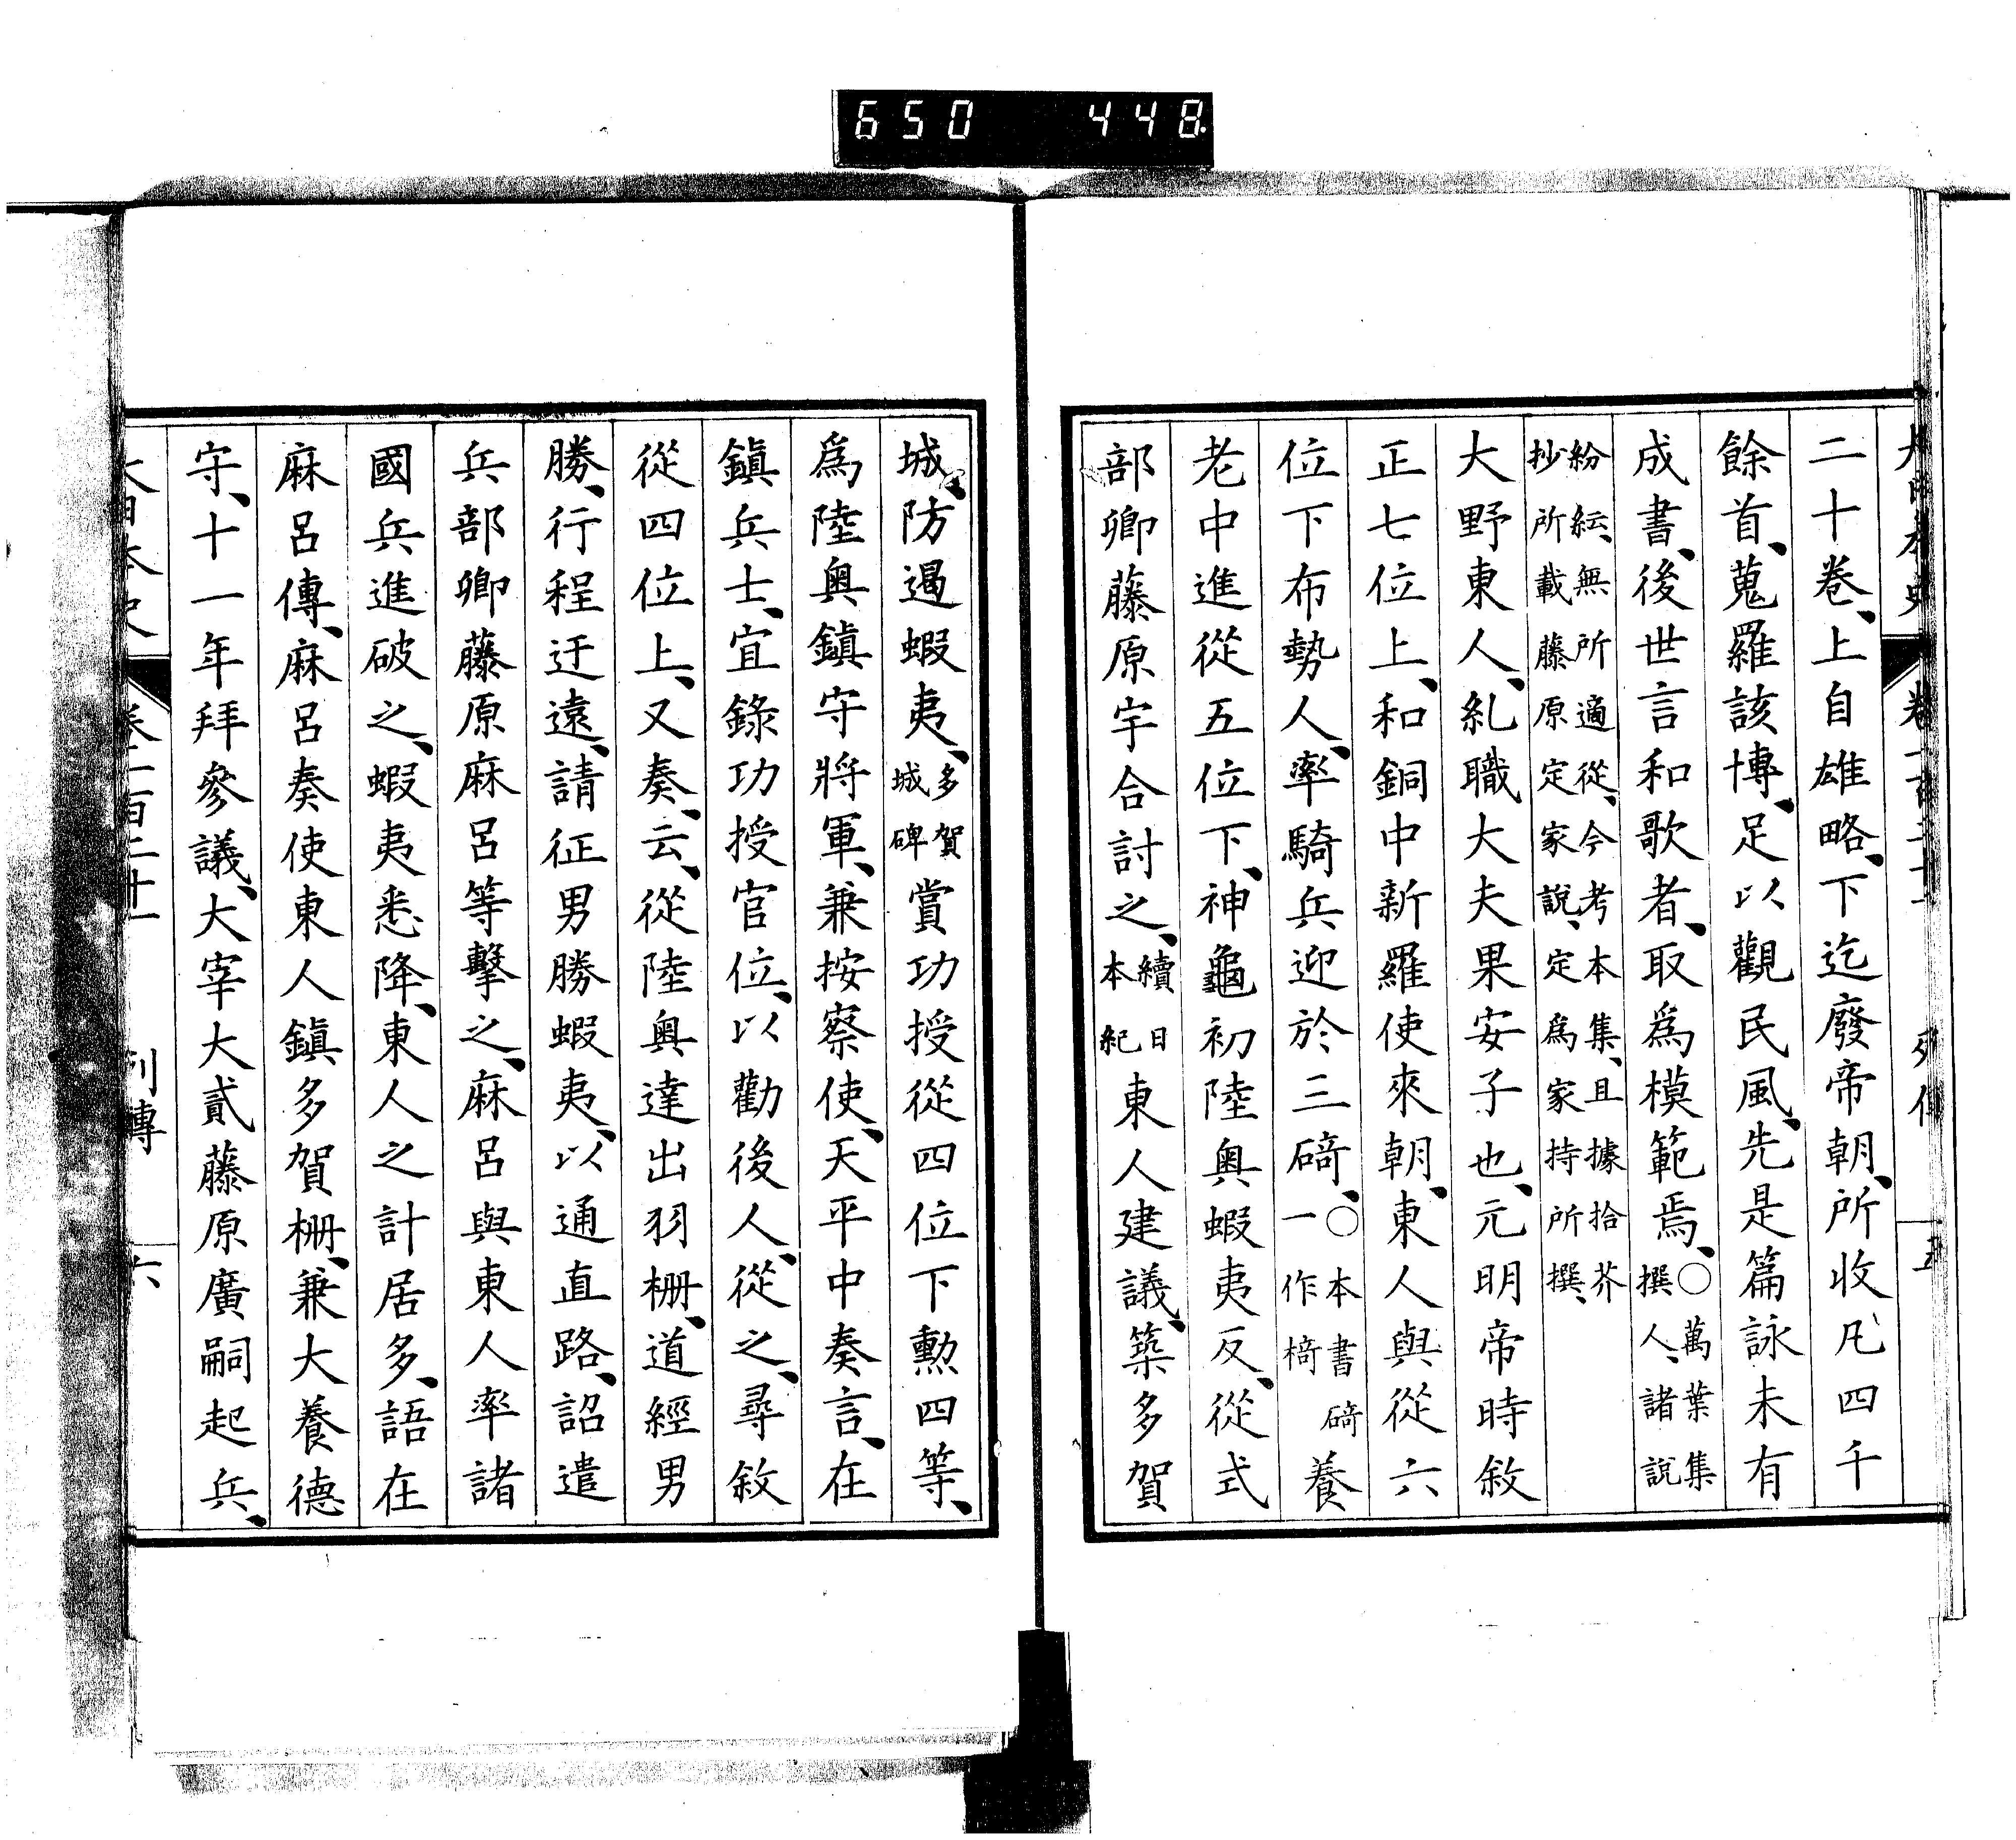 650 448
二十卷、上自雄略、下迄廢帝朝、所收凡四千
餘首、蒐羅該博、足以觀民風、先是篇詠未有
成書、後世言和歌者、取爲模範焉、〇萬葉集撰人、諸說
紛紜、無所適從、今考本集、且據拾芥抄所載藤原定家說、定爲家持所撰、
大野東人、糺職大夫果安子也、元明帝時敘
正七位上、和銅中新羅使來朝、東人與從六
位下布勢人、率騎兵迎於三碕、〇本書碕一作椅養
老中進從五位下、神龜初陸奥蝦夷反、從式
部卿藤原宇合討之、續日本紀東人建議、築多賀
城、防遏蝦夷、多賀城碑賞功授從四位下勳四等、
爲陸奥鎭守將軍、兼按察使、天平中奏言、在
鎭兵士、宜錄功授官位、以勸後人、從之、尋敘
從四位上、又奏、云、從陸奥達出羽柵、道經男
勝、行程迂遠、請征男勝蝦夷、以通直路、詔遣
兵部卿藤原麻呂等擊之、麻呂與東人率諸
國兵進破之、蝦夷悉降、東人之計居多、語在
麻呂傳、麻呂奏使東人鎭多賀柵、兼大養德
守、十一年拜參議、大宰大貳藤原廣嗣起兵、
大日本史 卷二百二十一 列傳 六